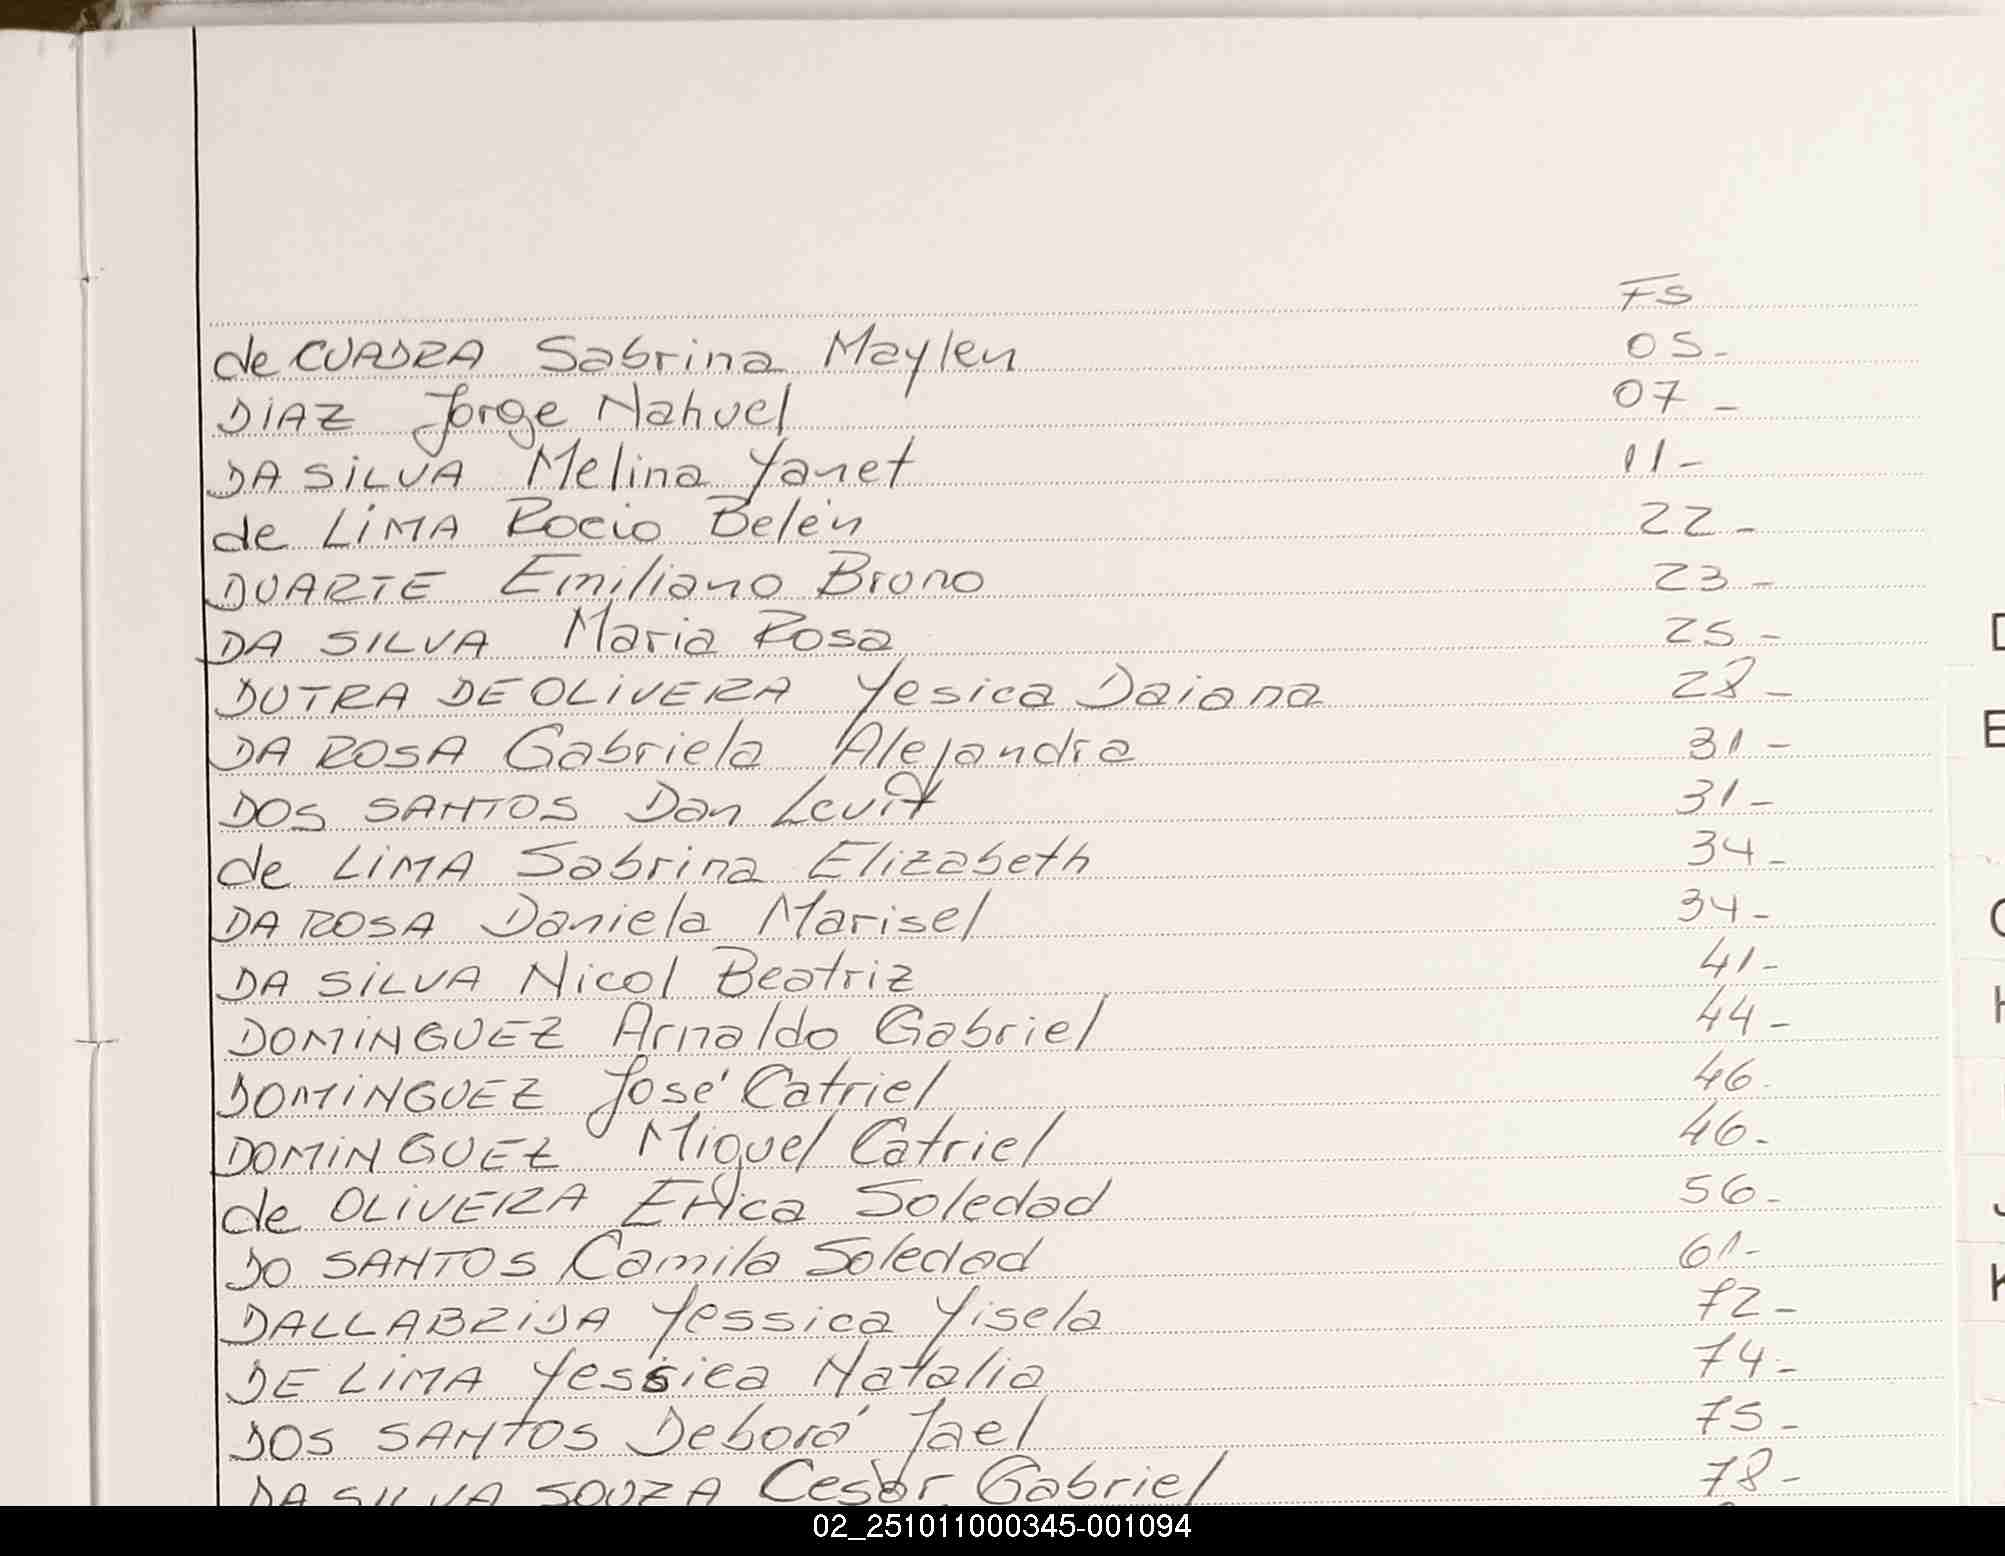 FS
de CUADRA Sabrina Maylen 05-
DIAZ Jorge Nahuel 07-
DA SILVA Melina Yanet 11-
de LIMA Rocio Belén 22-
DUARTE Emiliano Bruno 23-
DA SILVA Maria Rosa 25-
DUTRA DE OLIVERA Yesica Daiana 28-
DA ROSA Gabriela Alejandra 31-
DOS SANTOS Dan Levit 31-
de LIMA Sabrina Elizabeth 34-
DA ROSA Daniela Marisel 34-
DA SILVA Nicol Beatriz 41-
DOMINGUEZ Arnaldo Gabriel 44-
DOMINGUEZ José Catriel 46-
DOMINGUEZ Miguel Catriel 46-
de OLIVERA Erica Soledad 56-
DO SANTOS Camila Soledad 61-
DALLABRIDA Yessica Yisela 72-
DE LIMA Yessica Natalia 74-
DOS SANTOS Deborá Jael 75-
DA SILVA SOUZA Cesar Gabriel 78-
02_251011000345-001094